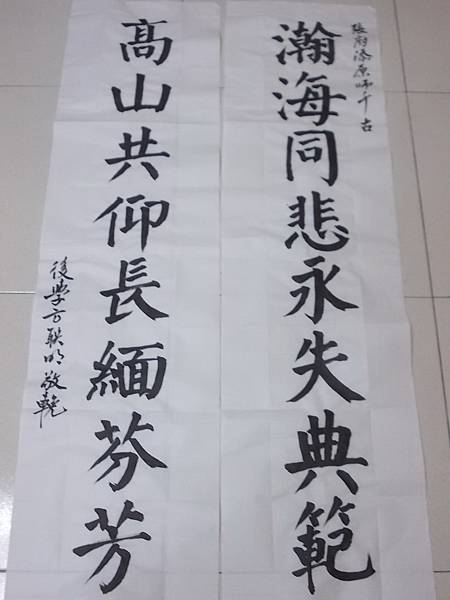 張府添原師千古
瀚海同悲永失典範
高山共仰長緬芬芳
後學方联明敬輓